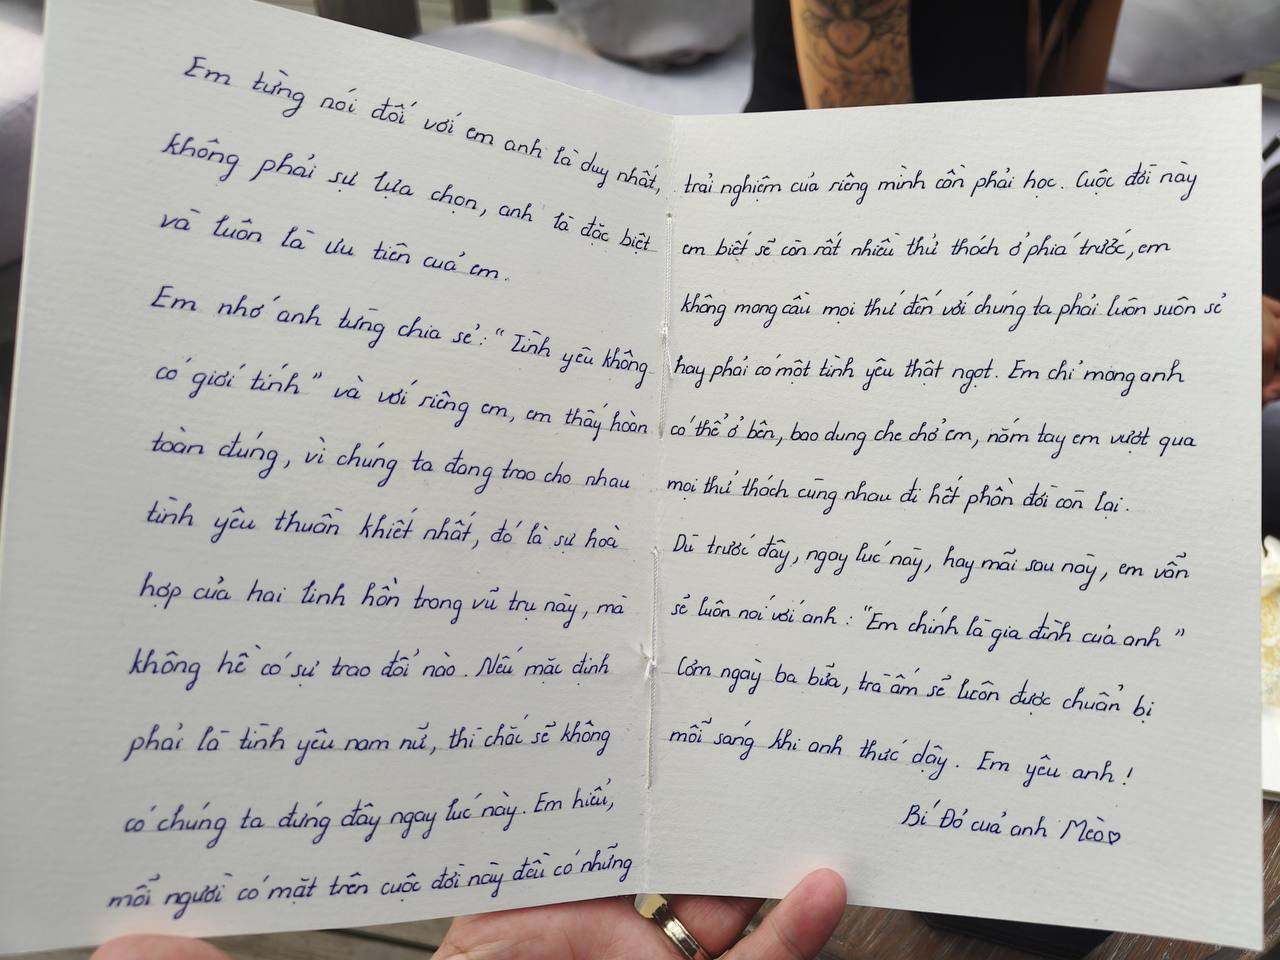 Em từng nói đối với em anh là duy nhất,
không phải sự lựa chọn, anh là đặc biệt
và luôn là ưu tiên của em.
Em nhớ anh từng chia sẻ: "Tình yêu không
có giới tính" và với riêng em, em thấy hoàn
toàn đúng, vì chúng ta đang trao cho nhau
tình yêu thuần khiết nhất, đó là sự hoà
hợp của hai linh hồn trong vũ trụ này, mà
không hề có sự trao đổi nào. Nếu mặc định
phải là tình yêu nam nữ, thì chắc sẽ không
có chúng ta đứng đây ngay lúc này. Em hiểu,
mỗi người có mặt trên cuộc đời này đều có những
trải nghiệm của riêng mình cần phải học. Cuộc đời này
em biết sẽ còn rất nhiều thử thách ở phía trước, em
không mong cầu mọi thứ đến với chúng ta phải luôn suôn sẻ
hay phải có một tình yêu thật ngọt. Em chỉ mong anh
có thể ở bên, bao dung che chở em, nắm tay em vượt qua
mọi thử thách cùng nhau đi hết phần đời còn lại.
Dù trước đây, ngay lúc này, hay mãi sau này, em vẫn
sẽ luôn nói với anh: "Em chính là gia đình của anh"
Cơm ngày ba bữa, trà ấm sẽ luôn được chuẩn bị
mỗi sáng khi anh thức dậy. Em yêu anh!
Bí Đỏ của anh Mèo♡